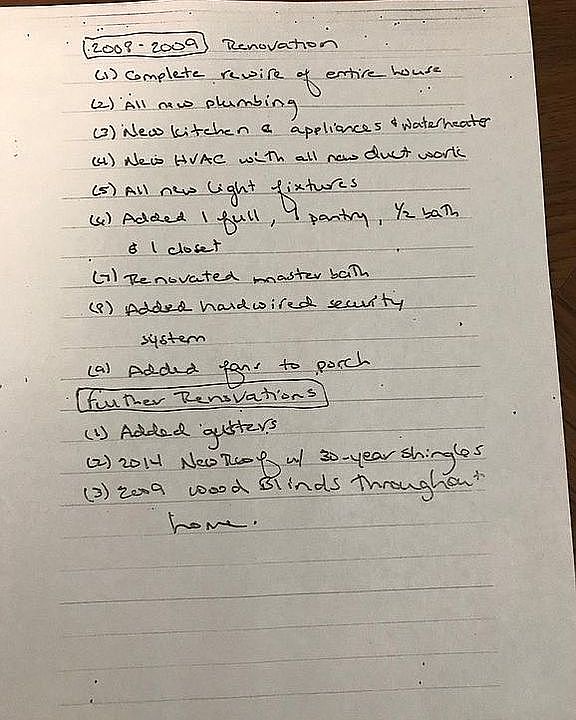 2008-2009 Renovation
(1) Complete rewire of entire house
(2) All new plumbing
(3) New kitchen & appliances & Waterheater
(4) New HVAC with all new duct work
(5) All new light fixtures
(6) Added 1 full, 1 pantry, 1/2 bath
& 1 closet
(7) Renovated master bath
(8) Added hardwired security
system
(9) Added fans to porch
Further Renovations
(1) Added gutters
(2) 2014 New Roof w/ 30-year shingles
(3) 2009 wood Blinds Throughout
home.